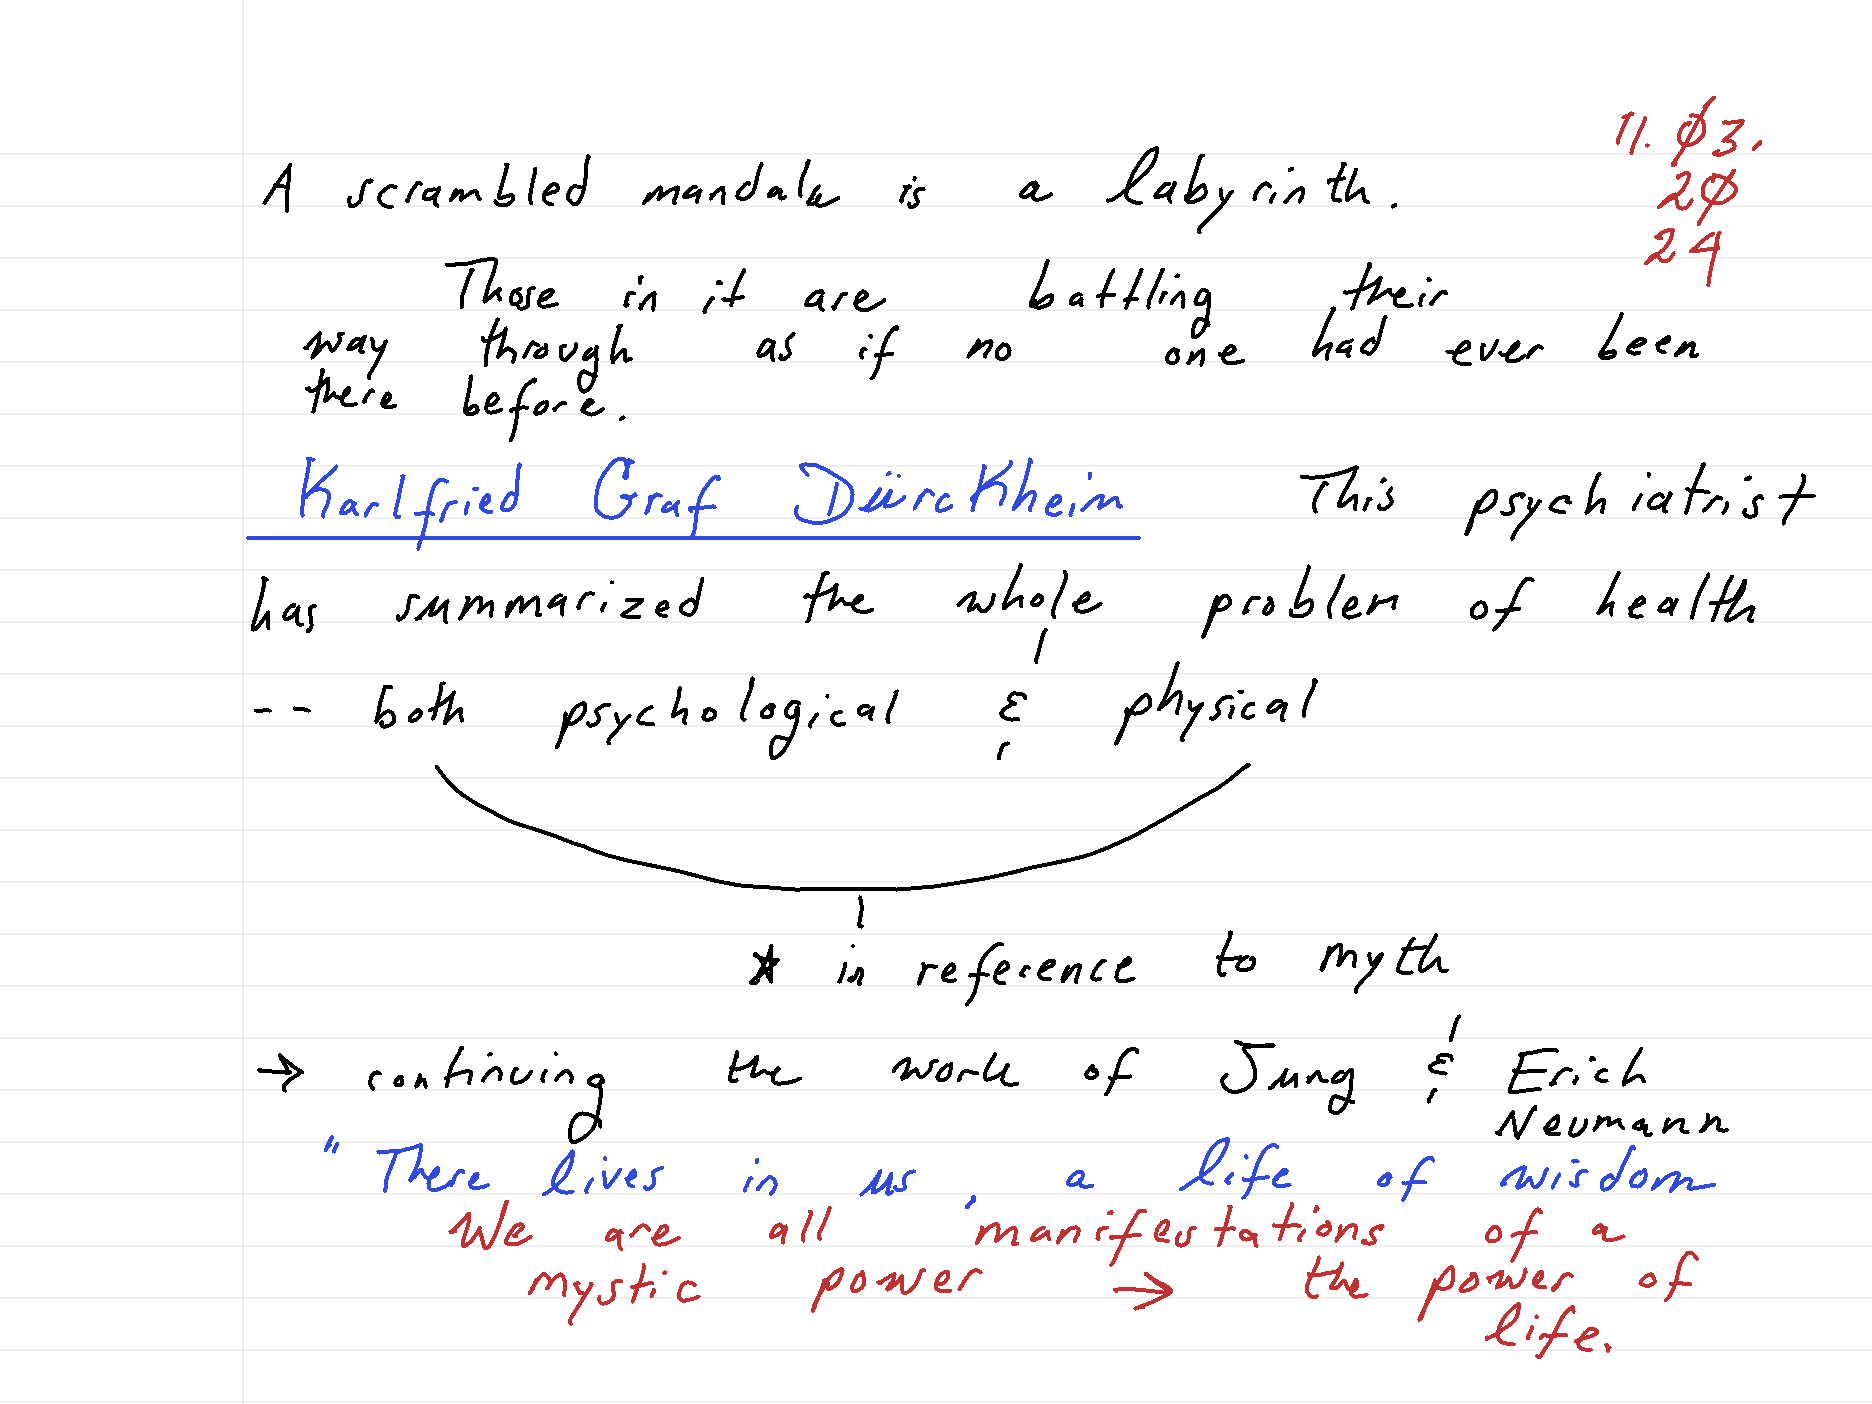 11.03.
20
24
A scrambled mandala is a labyrinth.
Those in it are battling their
way through as if no one had ever been
there before.
Karlfried Graf Dürckheim This psychiatrist
has summarized the whole problem of health
-- both psychological & physical
* in reference to myth
→ continuing the work of Jung & Erich
Neumann
" There lives in us, a life of wisdom
We are all manifestations of a
mystic power → the power of
life.